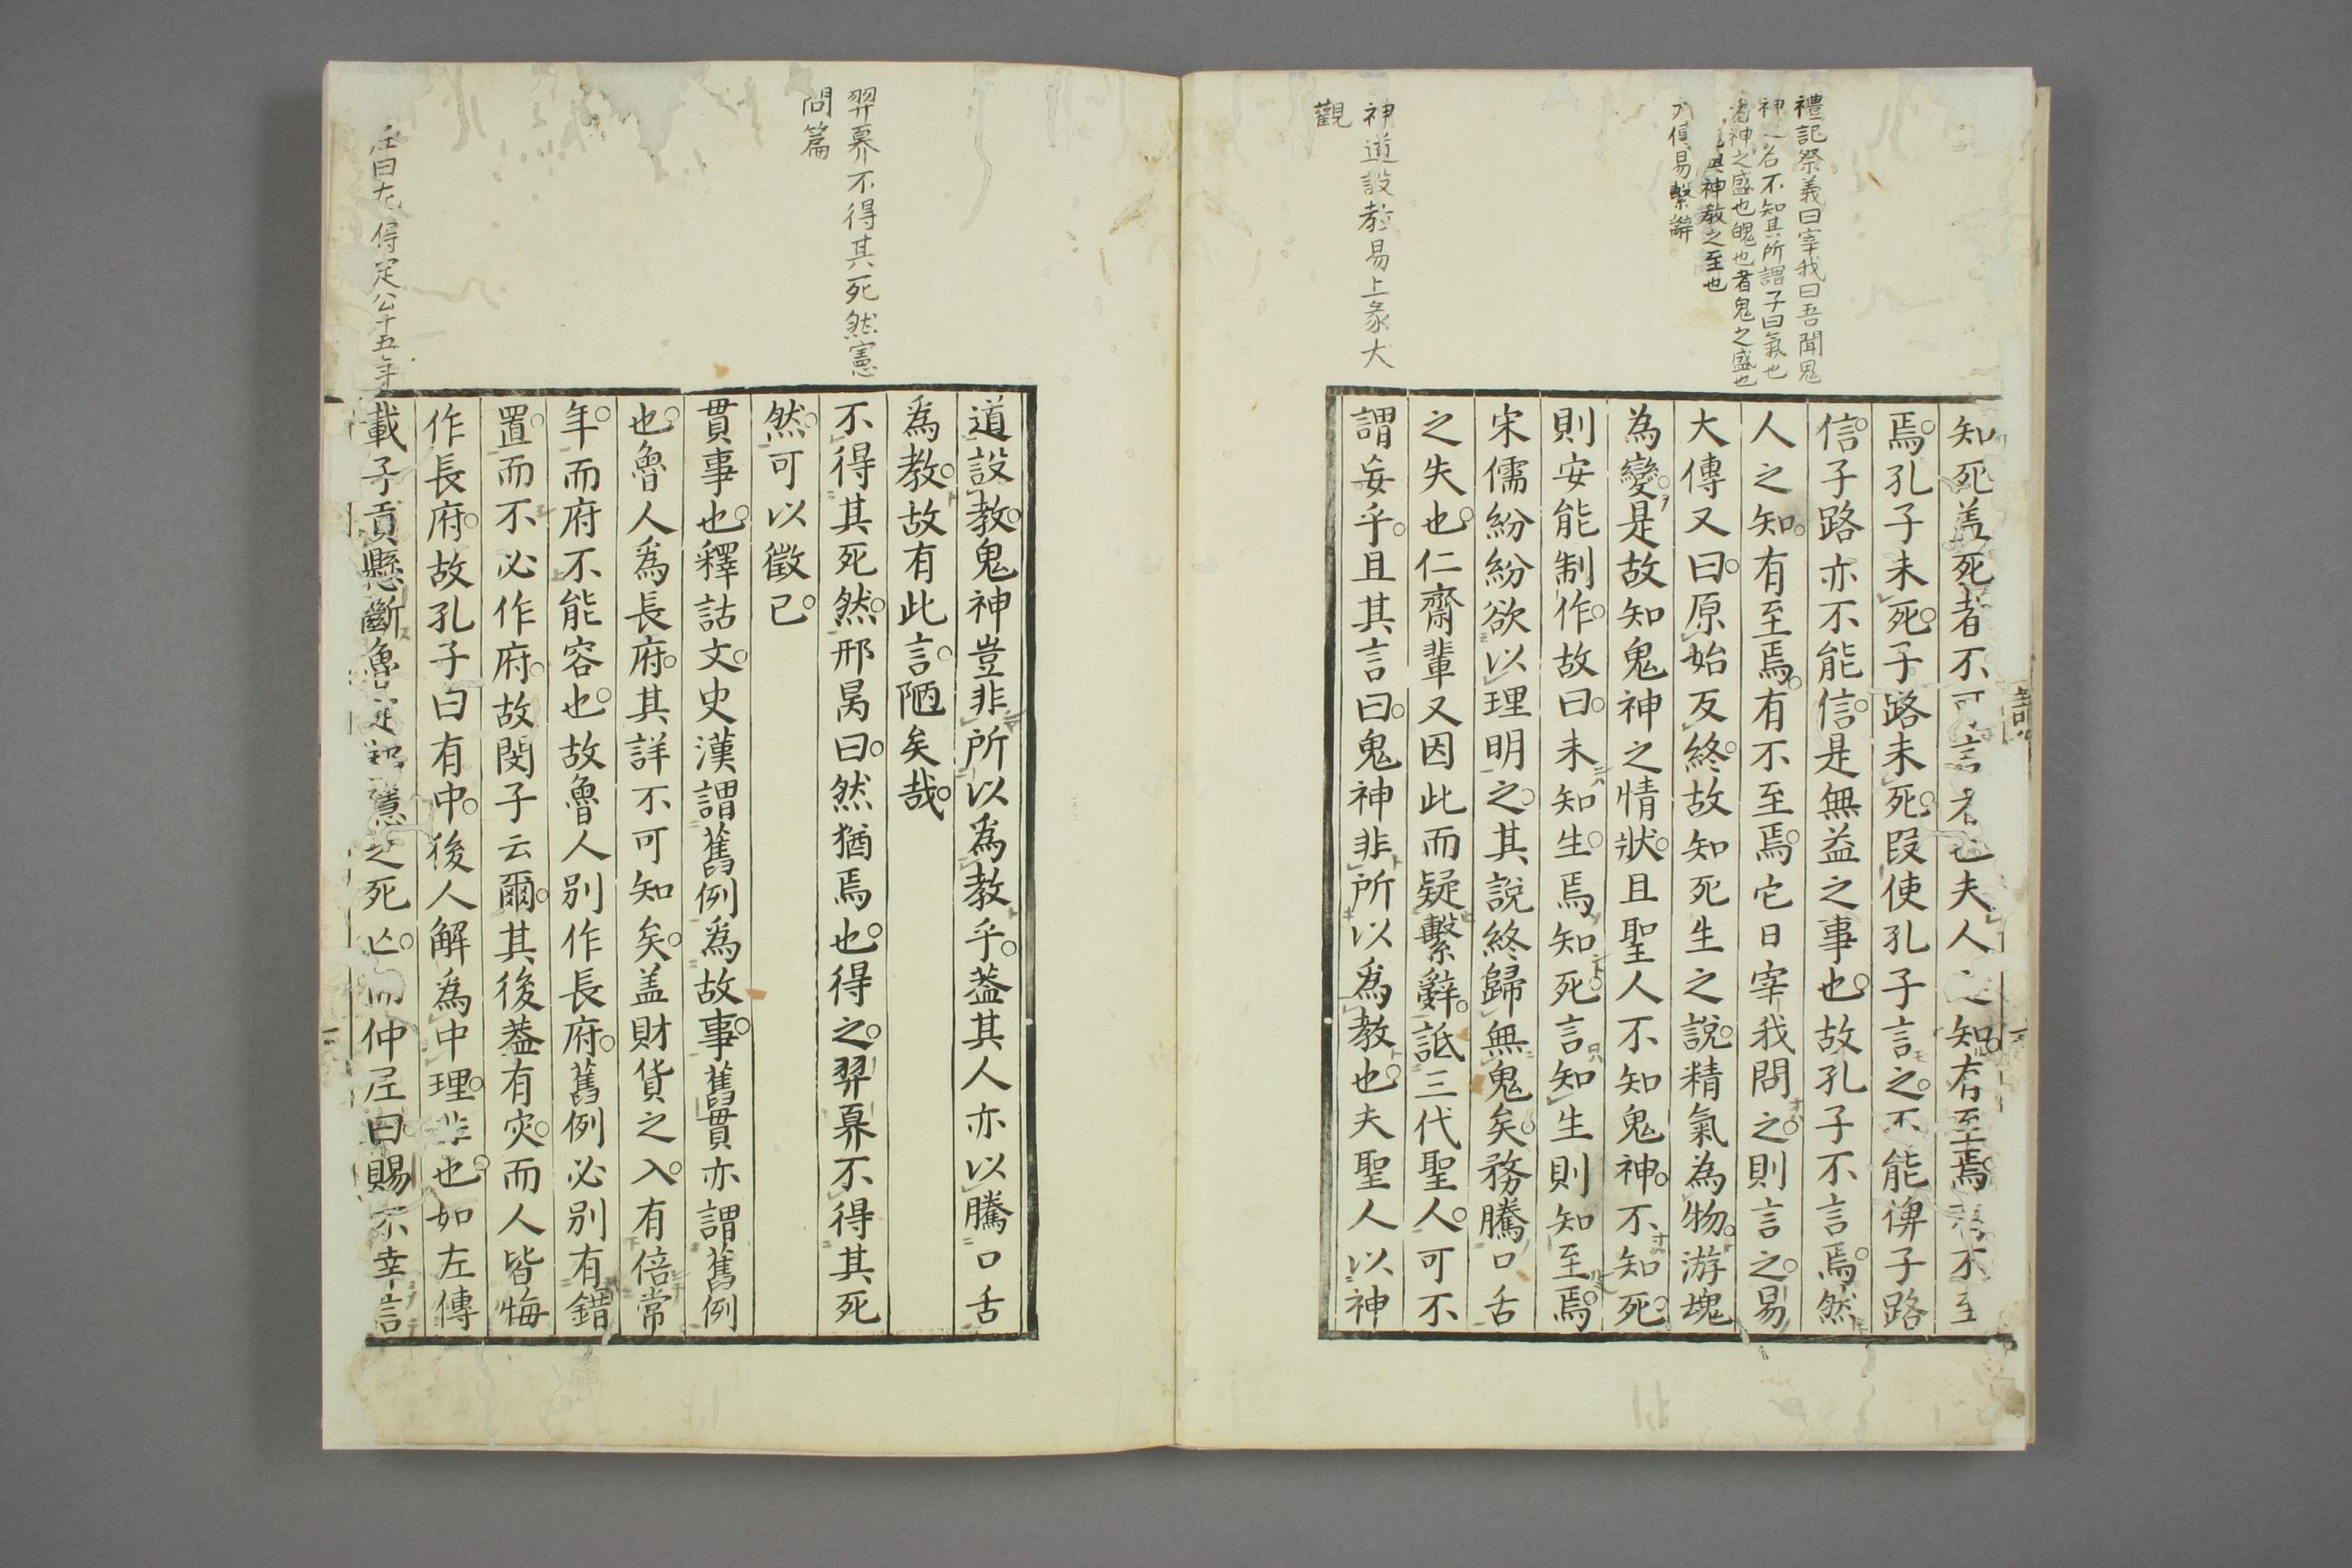 禮記祭義曰宰我曰吾聞鬼
神之名不知其所謂子曰氣也
者神之盛也魄也者鬼之盛也
與神教之至也
大傳易繫辭
神道設教易上彖大
觀
知死蓋死者不可言者也夫人之知有至焉有不至
焉孔子未死子路未死叚使孔子言之不能俾子路
信子路亦不能信是無益之事也故孔子不言焉然
人之知有至焉有不至焉它日宰我問之則言之易
大傳又曰原始反終故知死生之說精氣為物游塊
為變是故知鬼神之情狀且聖人不知鬼神不知死
則安能制作故曰未知生焉知死言知生則知至焉
宋儒紛紛欲以理明之其說終歸無鬼矣務騰口舌
之失也仁齋輩又因此而疑繫辭詆三代聖人可不
謂妄乎且其言曰鬼神非所以爲教也夫聖人以神
羿奡不得其死然憲
問篇
註曰左傳定公十五年
道設教鬼神豈非所以爲教乎蓋其人亦以騰口舌
爲教故有此言陋矣哉
不得其死然邢昺曰然猶焉也得之羿奡不得其死
然可以徵已
貫事也釋詁文史漢謂舊例爲故事舊貫亦謂舊例
也魯人爲長府其詳不可知矣盖財貨之入有倍常
年而府不能容也故魯人別作長府舊例必別有錯
置而不必作府故閔子云爾其後蓋有灾而人皆悔
作長府故孔子曰有中後人解爲中理非也如左傳
載子貢懸斷魯定邾隱之死亡而仲尼曰賜不幸言